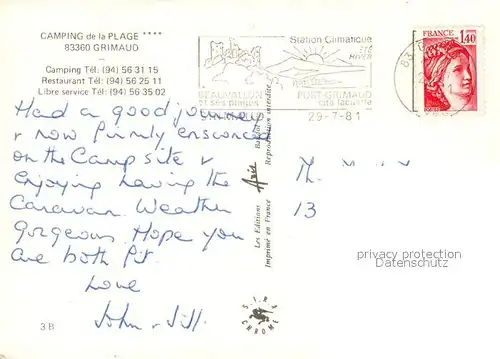 CAMPING de la PLAGE ****
83360 GRIMAUD
Camping Tél: (94) 56 31 15
Restaurant Tél: (94) 56 25 11
Libre service Tél: (94) 56 35 02
Had a good journey
& now firmly ensconced
on the Camp site &
enjoying having the
Caravan. Weather
gorgeous. Hope you
are both fit.
Love
John & Jill.
3B
Station Climatique
ÉTÉ
HIVER
BEAUVALLON
et ses plages
GRIMAUD
PORT-GRIMAUD
cité lacustre
29-7-81
83
FRANCE
1,40
Les Editions Aris
Imprimé en France
Reproduction interdite
SIRA
CHROME
Th
13
privacy protection
Datenschutz